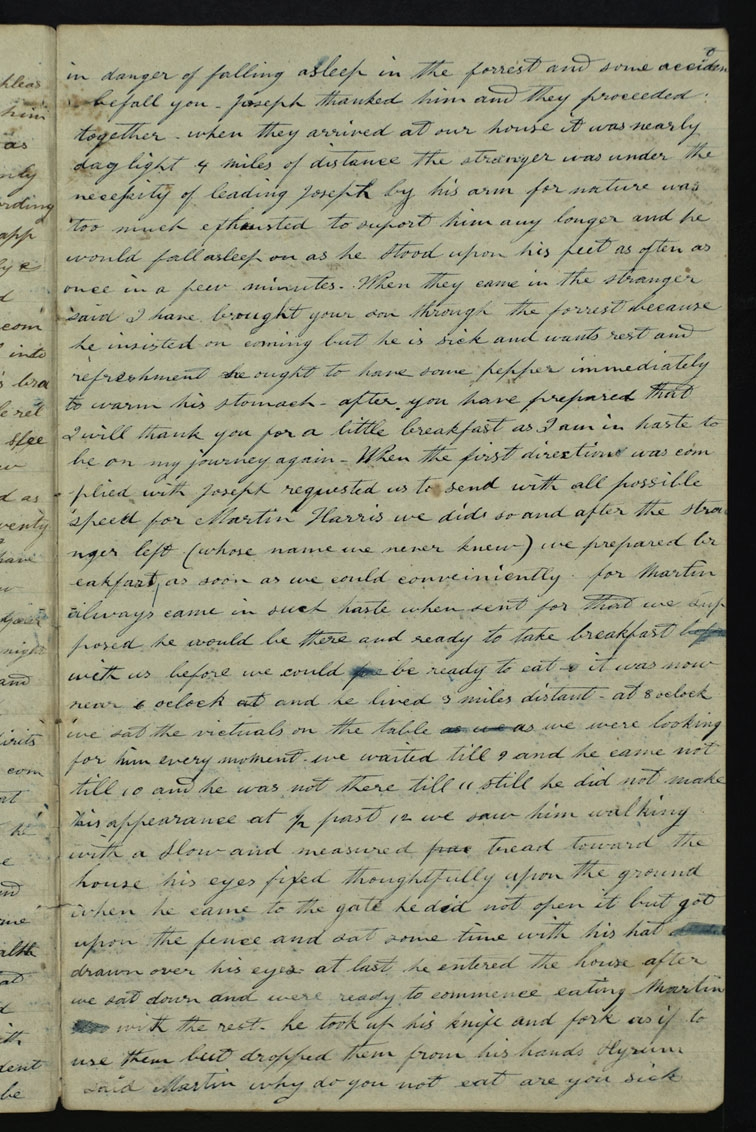 in danger of falling asleep in the forrest and some acciden
befall you - Joseph thanked him and they proceeded
together - when they arrived at our house it was nearly
day light 4 miles of distance the stranger was under the
necessity of leading Joseph by his arm for nature was
too much exhausted to suport him any longer and he
would fall asleep on as he stood upon his feet as often as
once in a few minutes - When they came in the stranger
said I have brought your son through the forrest because
he insisted on coming but he is sick and wants rest and
refreshment he ought to have some pepper immediately
to warm his stomach - after you have prepared that
I will thank you for a little breakfast as I am in haste to
be on my journey again - When the first directions was com
plied with Joseph requested us to send with all possible
speed for Martin Harris we did so and after the stra
nger left (whose name we never knew) we prepared br
eakfast, as soon as we could conveiniently for Martin
always came in such haste when sent for that we sup
posed he would be there and ready to take breakfast
with us before we could be ready to eat - it was now
near 6 oclock at and he lived 3 miles distant - at 8 oclock
we sat the victuals on the table as we as we were looking
for him every moment - we waited till 9 and he came not
till 10 and he was not there till 11 still he did not make
his appearance at ½ past 12 we saw him walking
with a slow and measured tread toward the
house his eyes fixed thoughtfully upon the ground
when he came to the gate he did not open it but got
upon the fence and sat some time with his hat
drawn over his eyes at last he entered the house after
we sat down and were ready to commence eating Martin
with the rest - he took up his knife and fork as if to
use them but dropped them from his hands Hyrum
said Martin why do you not eat are you sick